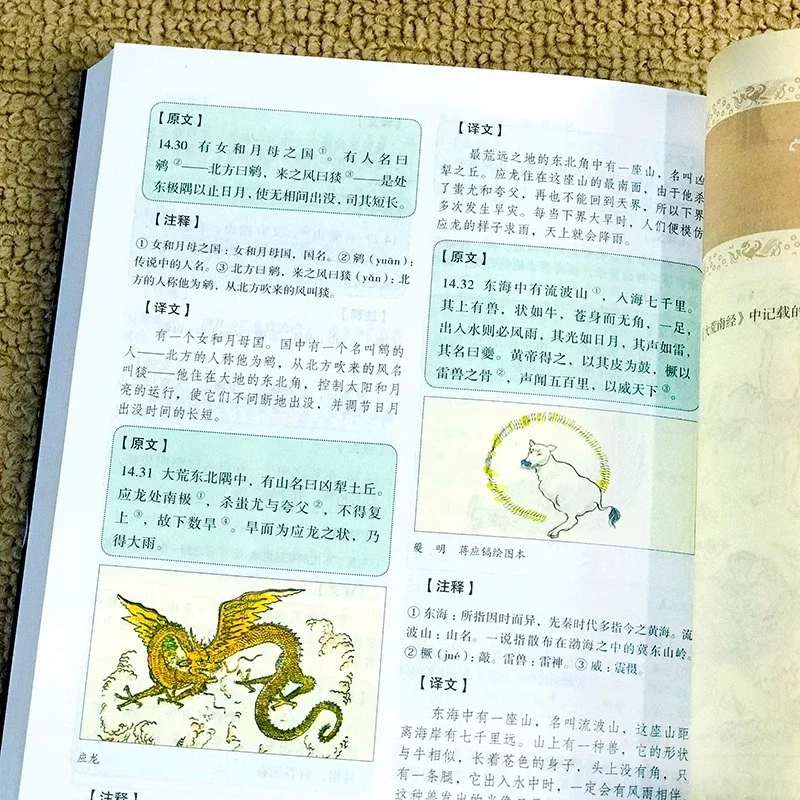 【原文】
14.30 有女和月母之国①。有人名曰
鹓②——北方曰鹓，来之风曰狻③——是处
东极隅以止日月，使无相间出没，司其短长。
【注释】
①女和月母之国：女和月母国，国名。②鹓（yuān）：
传说中的人名。③北方曰鹓，来之风曰狻（yǎn）：北
方的人称他为鹓，从北方吹来的风叫狻。
【译文】
有一个女和月母国。国中有一个名叫鹓的
人——北方的人称他为鹓，从北方吹来的风名
叫狻——他住在大地的东北角，控制太阳和月
亮的运行，使它们不间断地出没，并调节日月
出没时间的长短。
【原文】
14.31 大荒东北隅中，有山名曰凶犁土丘。
应龙处南极①，杀蚩尤与夸父②，不得复
上③，故下数旱④。旱而为应龙之状，乃
得大雨。
应龙
【注释】
【译文】
最荒远之地的东北角中有一座山，名叫凶
犁之丘。应龙住在这座山的最南面，由于他杀
了蚩尤和夸父，再也不能回到天界，所以下界
多次发生旱灾。每当下界大旱时，人们便模仿
应龙的样子求雨，天上就会降雨。
【原文】
14.32 东海中有流波山①，入海七千里。
其上有兽，状如牛，苍身而无角，一足，
出入水则必风雨，其光如日月，其声如雷，
其名曰夔。黄帝得之，以其皮为鼓，橛以
雷兽之骨②，声闻五百里，以威天下③。
夔 明 蒋应镐绘图本
【注释】
①东海：所指因时而异，先秦时代多指今之黄海。流
波山：山名。一说指散布在渤海之中的冀东山岭。
②橛（jué）：敲。雷兽：雷神。③威：震慑。
【译文】
东海中有一座山，名叫流波山，这座山距
离海岸有七千里远。山上有一种兽，它的形状
与牛相似，长着苍色的身子，头上没有角，只
有一条腿，它出入水中时，一定会有风雨相伴
大荒南经》中记载的